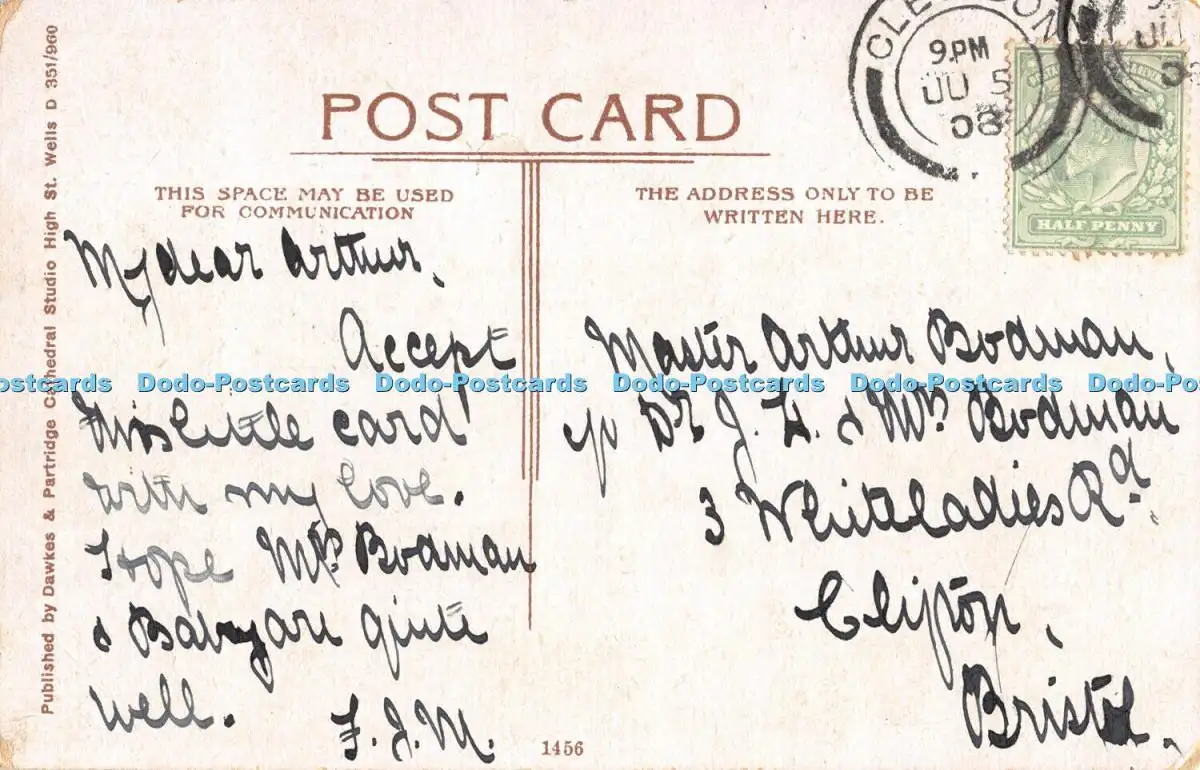 Published by Dawkes & Partridge Cathedral Studio High St. Wells D 351/960
CLEVEDON
9.PM
JU 5
08
JU
08
POST CARD
THIS SPACE MAY BE USED
FOR COMMUNICATION
THE ADDRESS ONLY TO BE
WRITTEN HERE.
HALF PENNY
My dear Arthur,
Accept
this little card
with my love.
Hope Mrs. Bodman
& Baby are quite
well. F. J. M.
Master Arthur Bodman,
c/o Dr J. H. & Mrs Bodman
3 Whiteladies Rd.
Clifton,
Bristol.
1456
Dodo-Postcards Dodo-Postcards Dodo-Postcards Dodo-Postcards Dodo-Postcards Dodo-Postcards